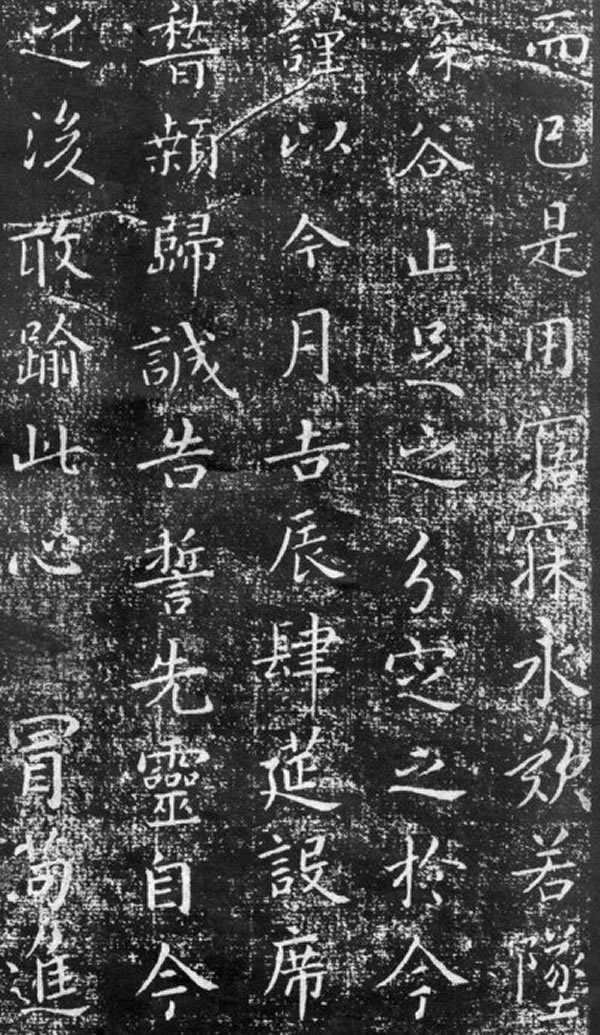 而已是用寤寐永歎若墜
深谷止足之分定之於今
謹以今月吉辰肆筵設席
稽顙歸誠告誓先靈自今
之後敢踰此心冒苟進